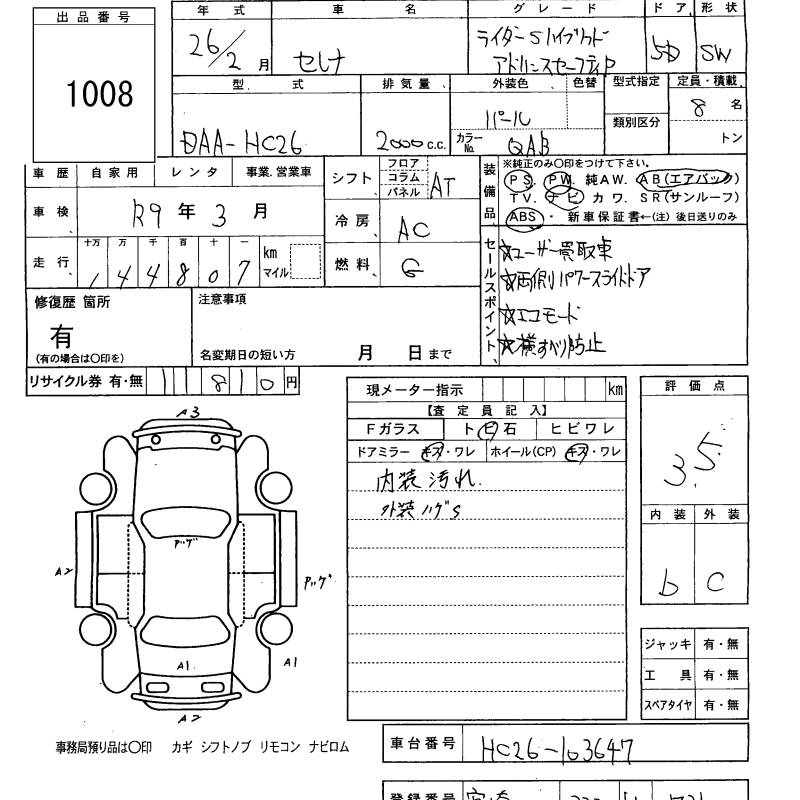 出品番号
1008
年式 車名 グレード ドア 形状
26/2月 セレナ ライダーSハイブリッド アドバンスセーフティP 5D SW
型式 排気量 外装色 色替 型式指定 定員・積載
DAA-HC26 2000 C.C. パール 8名
カラーNo. QAB 類別区分 トン
車歴 自家用 レンタ 事業.営業車
車検 R9年3月
走行 十万 万 千 百 十 一 km マイル
144807
シフト フロア コラム パネル AT
冷房 AC
燃料 G
装備品
※純正のみ〇印をつけて下さい。
PS. PW. 純AW. AB(エアバック)
TV. ナビ カワ. SR(サンルーフ)
ABS・新車保証書←(注) 後日送りのみ
セールスポイント
☆ユーザー買取車
☆両側パワースライドドア
☆エコモード
☆横すべり防止
修復歴 箇所
有
(有の場合は〇印を)
注意事項
名変期日の短い方 月 日まで
リサイクル券 有・無 11810円
現メーター指示 km
【査定員記入】
Fガラス ト ビ 石 ヒビワレ
ドアミラー キズ・ワレ ホイール(CP) キズ・ワレ
内装汚れ.
外装ハゲS
評価点
3.5
内装 外装
b C
ジャッキ 有・無
工具 有・無
スペアタイヤ 有・無
A3
アッゲ
A2
アッゲ
A1
A1
A2
事務局預り品は〇印 カギ シフトノブ リモコン ナビロム
車台番号 HC26-103647
登録番号